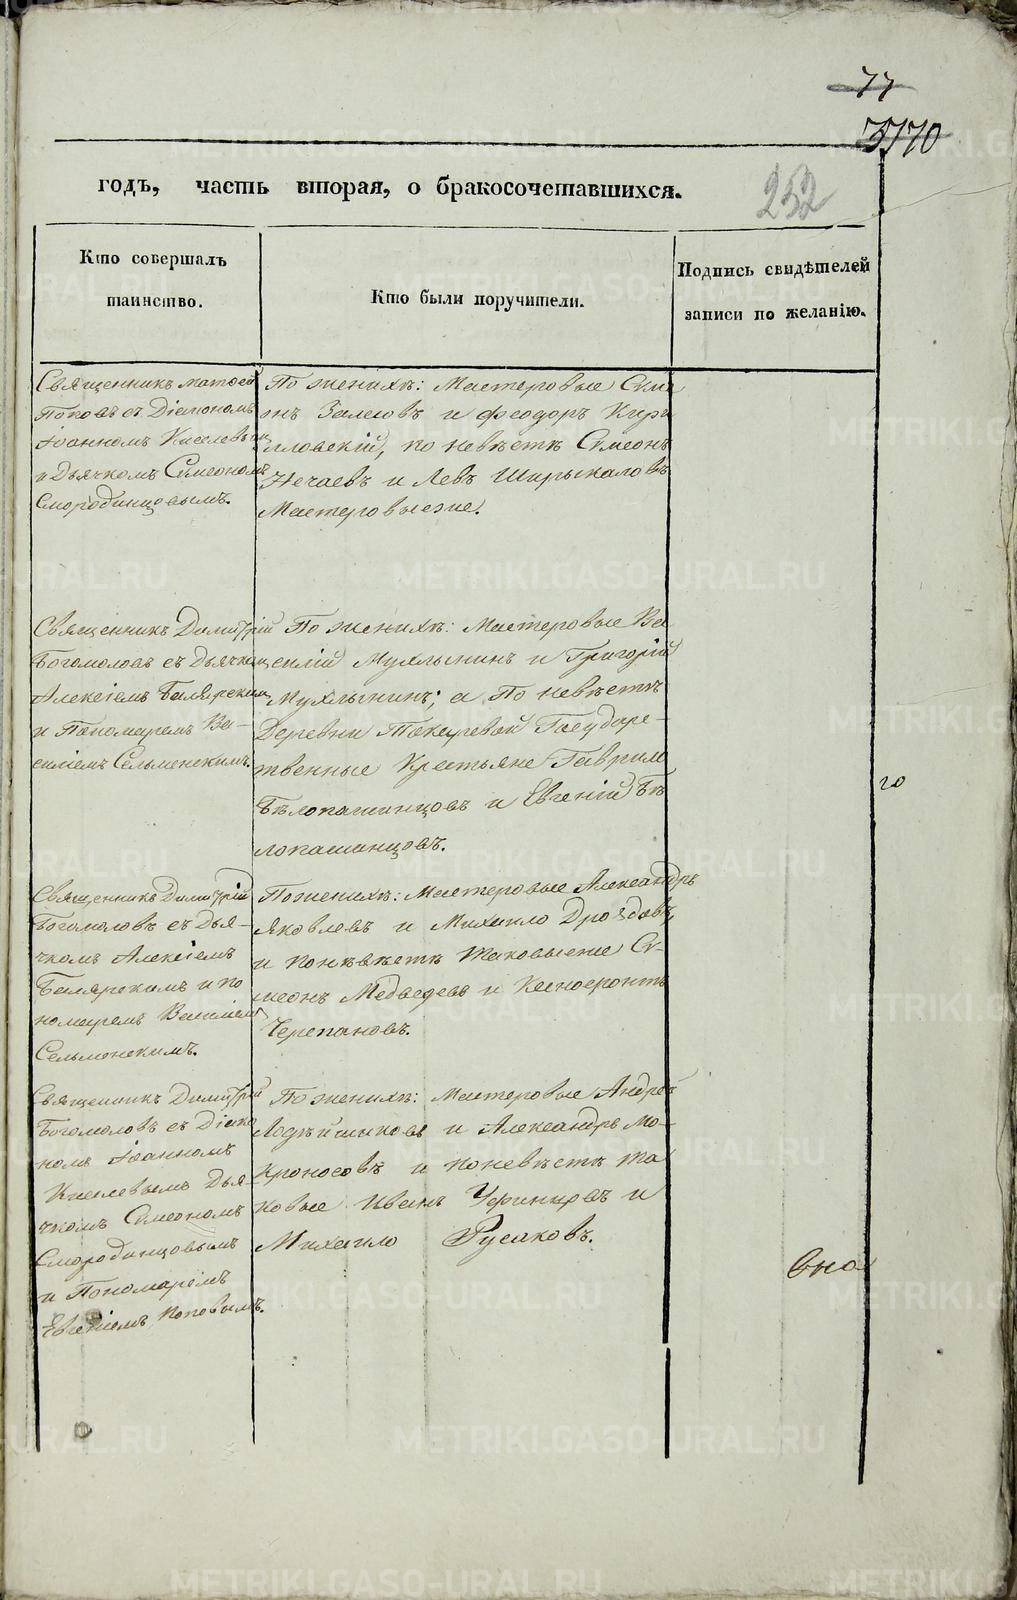 77
годъ, часть вторая, о бракосочетавшихся.
252
Кто совершалъ
таинство.
Кто были поручители.
Подпись свидѣтелей
записи по желанію.
Священникъ Матѳей
Поповъ съ Діакономъ
Іоанномъ Киселевымъ
и Дьячкомъ Симеономъ
Смородинцовымъ.
По женихѣ: Мастеровые Симе
онъ Залесовъ и Феодоръ Кири
лловскій, по невѣстѣ Симеонъ
Нечаевъ и Левъ Ширыкаловъ
Мастеровыеже.
Священникъ Димитрій
Богомоловъ съ Дьячкомъ
Алексіемъ Баляреким
и Пономаремъ Ва-
силіемъ Сельменскимъ.
По женихѣ: Мастеровые Ва
силій Мухлынинъ и Григорій
Мухлынинъ; а по невѣстѣ
Деревни Токаревой Государс-
твенные Крестьяне Гаврило
Бѣлопашинцовъ и Евгеній Бѣ
лопашинцовъ.
го
Священникъ Димитрій
Богомоловъ съ Дья-
чкомъ Алексіемъ
и по
номаремъ Василіемъ
Сельменскимъ.
По женихѣ: Мастеровые Александръ
Яковлевъ и Михайло Дроздовъ,
и по невѣстѣ таковыеже Си-
меонъ Медведевъ и Ксенофонтъ
Черепановъ.
Священникъ Димитрій
Богомоловъ съ Діако
номъ Іоанномъ
Киселевымъ Дья-
чкомъ Симеономъ
Смородинцовымъ
и Пономаремъ
Евгеніемъ Поповымъ.
По женихѣ: Мастеровые Андрей
Лодѣйщиковъ и Александръ Мо-
кроносовъ и по невѣстѣ та
ковые Иванъ и
Михайло Русаковъ.
вна
METRIKI.GASO-URAL.RU